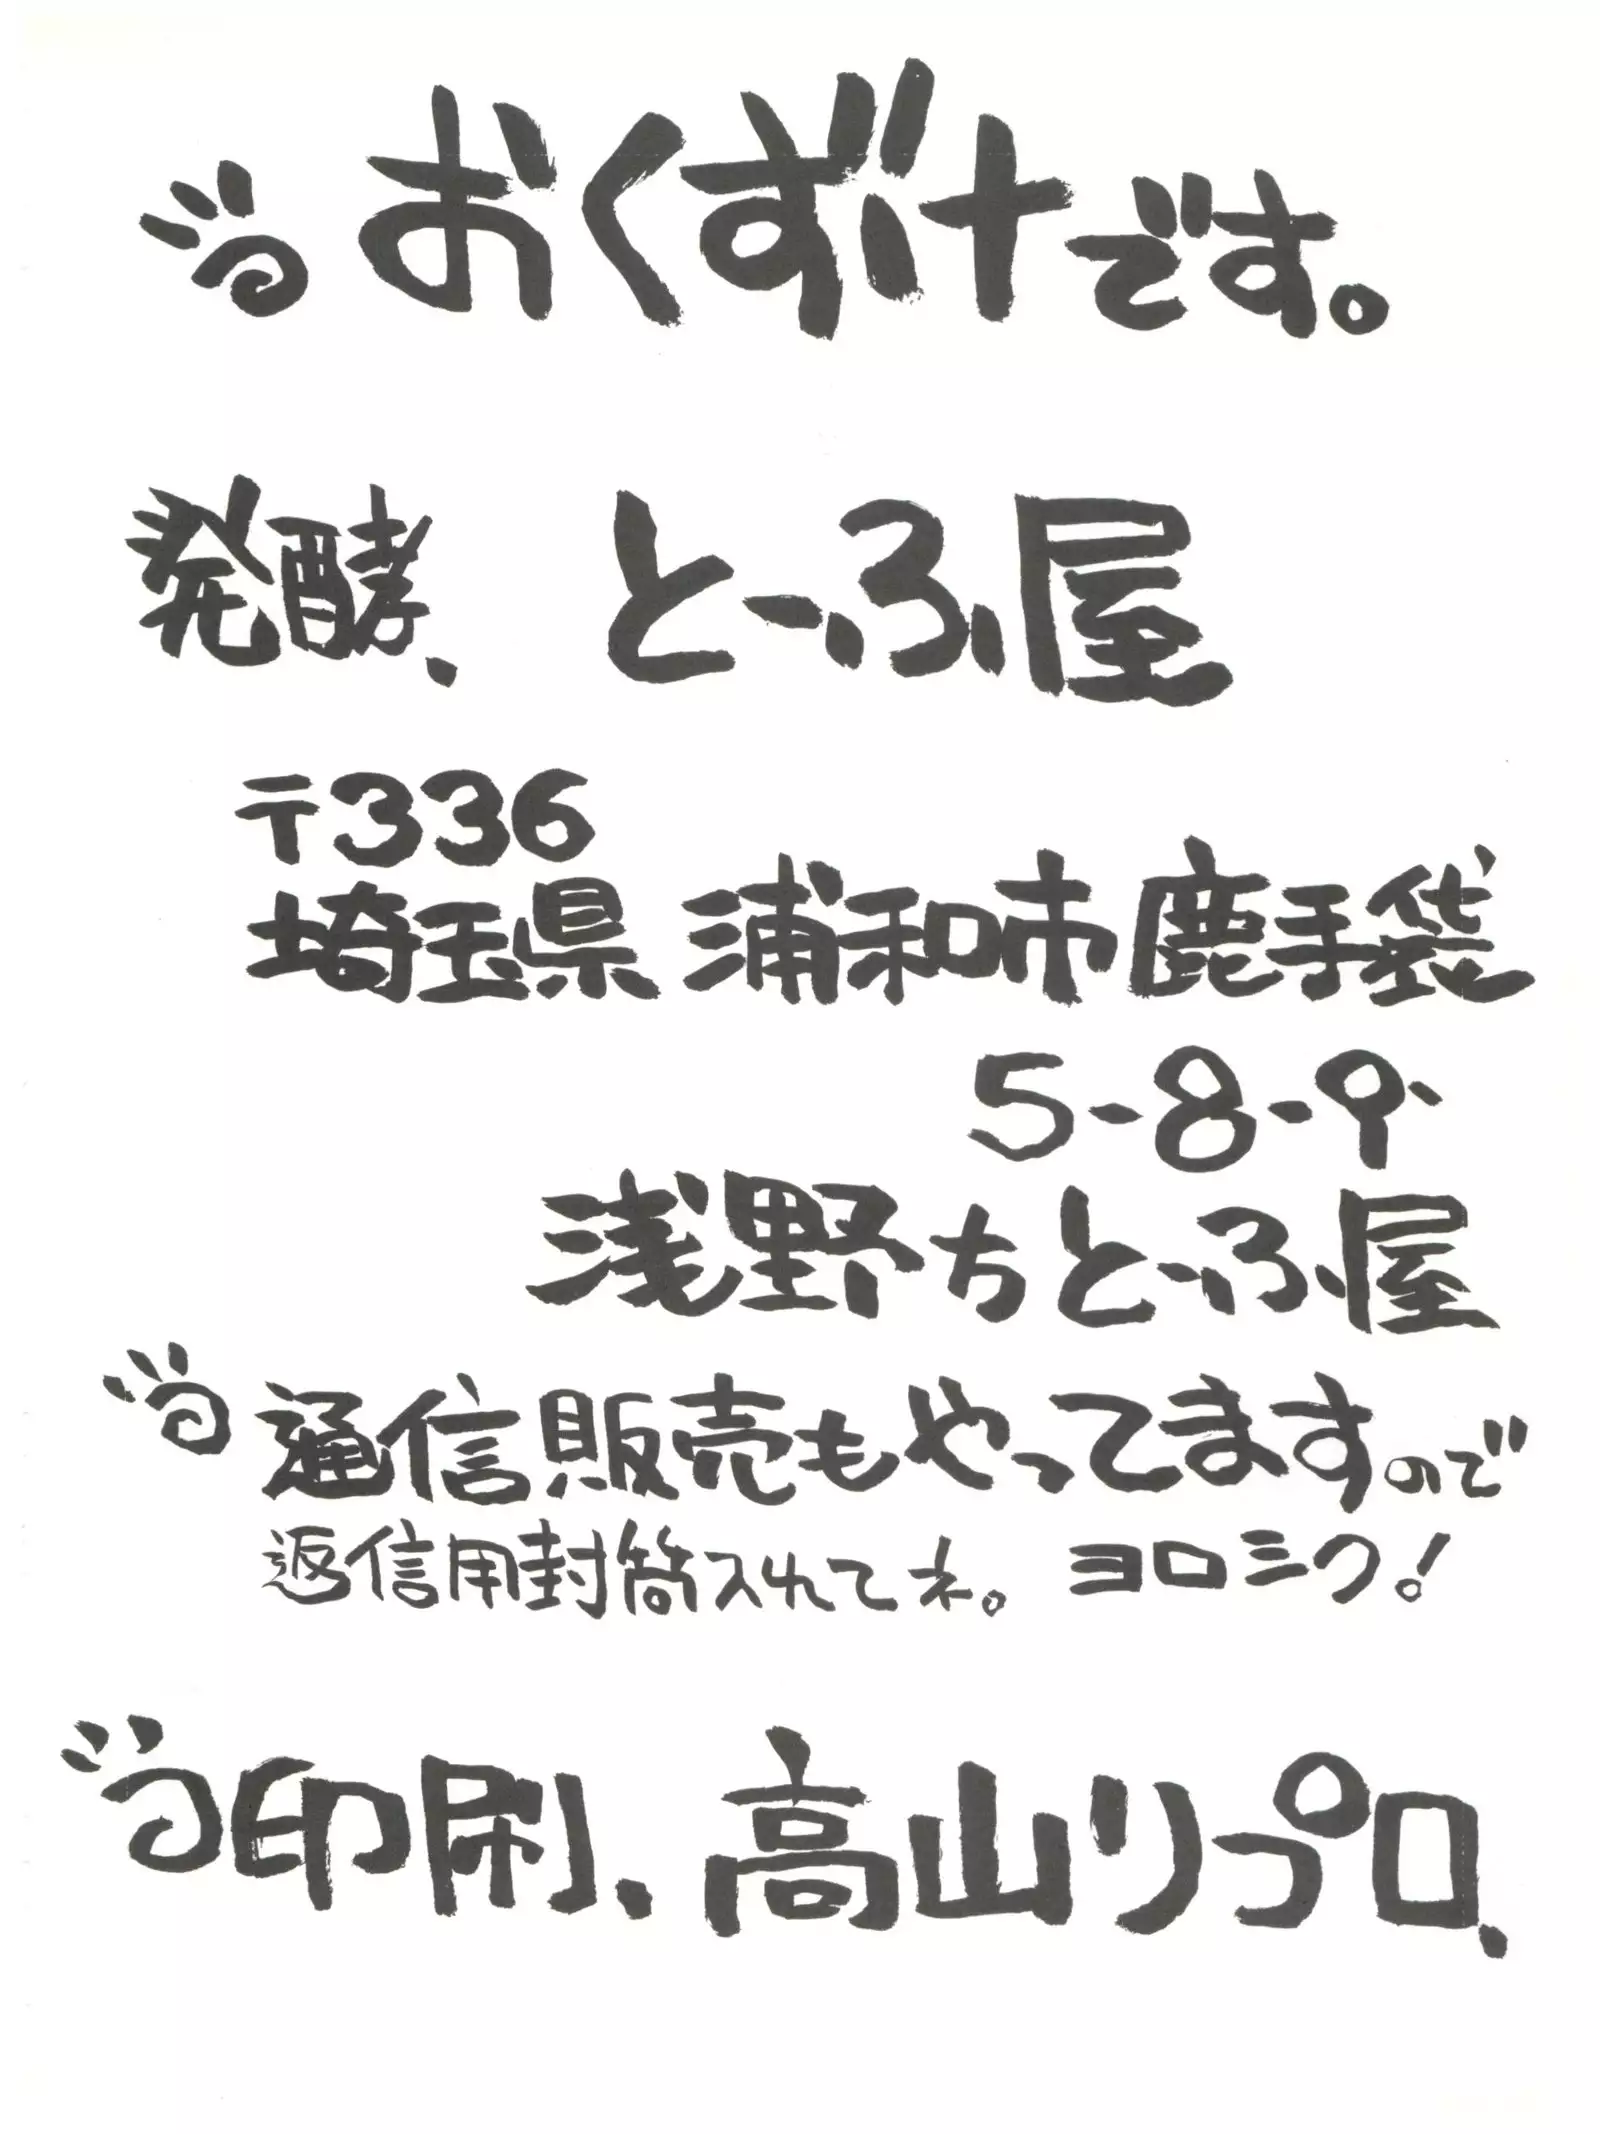 おくずけです。
発酵、とーふ屋
〒336
埼玉県 浦和市 鹿手袋
5-8-9-
浅野ちとーふ屋
通信販売もやってますので
返信用封筒入れてネ。ヨロシク!
印刷、高山リプロ、